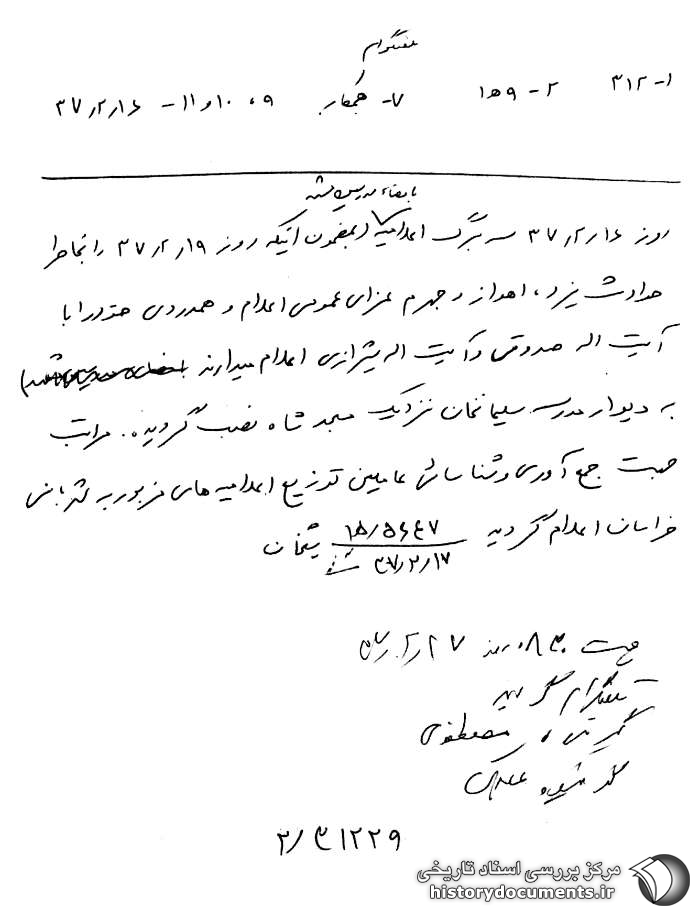 تلفنگرام
۱- ۳۱۲ ۲- ۹ ه‍ ۱ ۷- همکار ۹، ۱۰ و ۱۱- ۳۷/۲/۱۶
بامضاء مدرسین قم
روز ۳۷/۲/۱۶ سه برگ اعلامیه بمضمون اینکه روز ۳۷/۲/۱۹ را بخاطر
حوادث یزد، اهواز و جهرم عزای عمومی اعلام و همدردی خود را با
آیت اله صدوقی و آیت اله شیرازی اعلام میدارند
به دیوار مدرسه سلیمانخان نزدیک مسجد شاه نصب گردیده. مراتب
جهت جمع آوری و شناسائی عاملین توزیع اعلامیه های مزبور به شهربانی
خراسان اعلام گردید ۱۵/۵۶۴۷ شیخان
۳۷/۲/۱۷
۰۸۳۰ روز ۳۷/۲/۱۷
تلفنگرام گردید
گیرنده مصطفوی
گوینده
۲/۳۱۲۲۹
مرکز بررسی اسناد تاریخی
historydocuments.ir